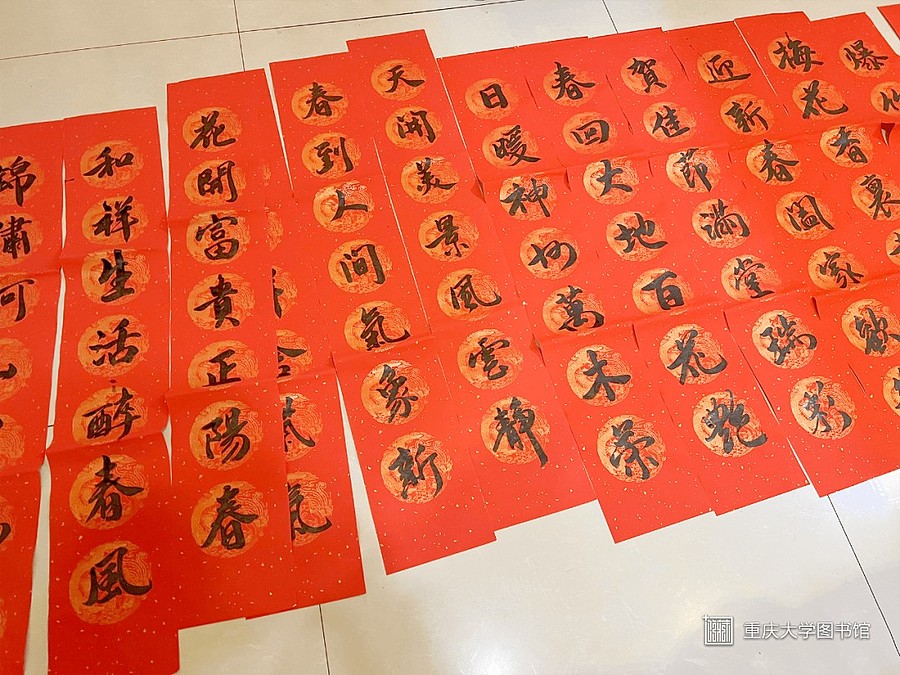 爆
梅花春裏
迎新春闔家歡
賀佳節滿堂瑞彩
春回大地百花艷
日暖神州萬木榮
天開美景風雲靜
春到人間氣象新
花開富貴正陽春
和祥生活醉春風
錦繡河
重庆大学图书馆